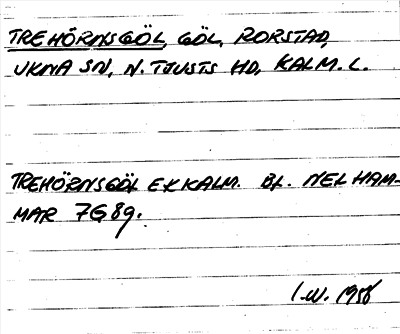 TREHÖRNSGÖL, GÖL, RORSTAD,
UKNA SN, N. TJUSTS HD, KALM. L.
TREHÖRNSGÖL EK KALM. BL. NELHAM-
MAR 7G 8g.
I.W. 1956